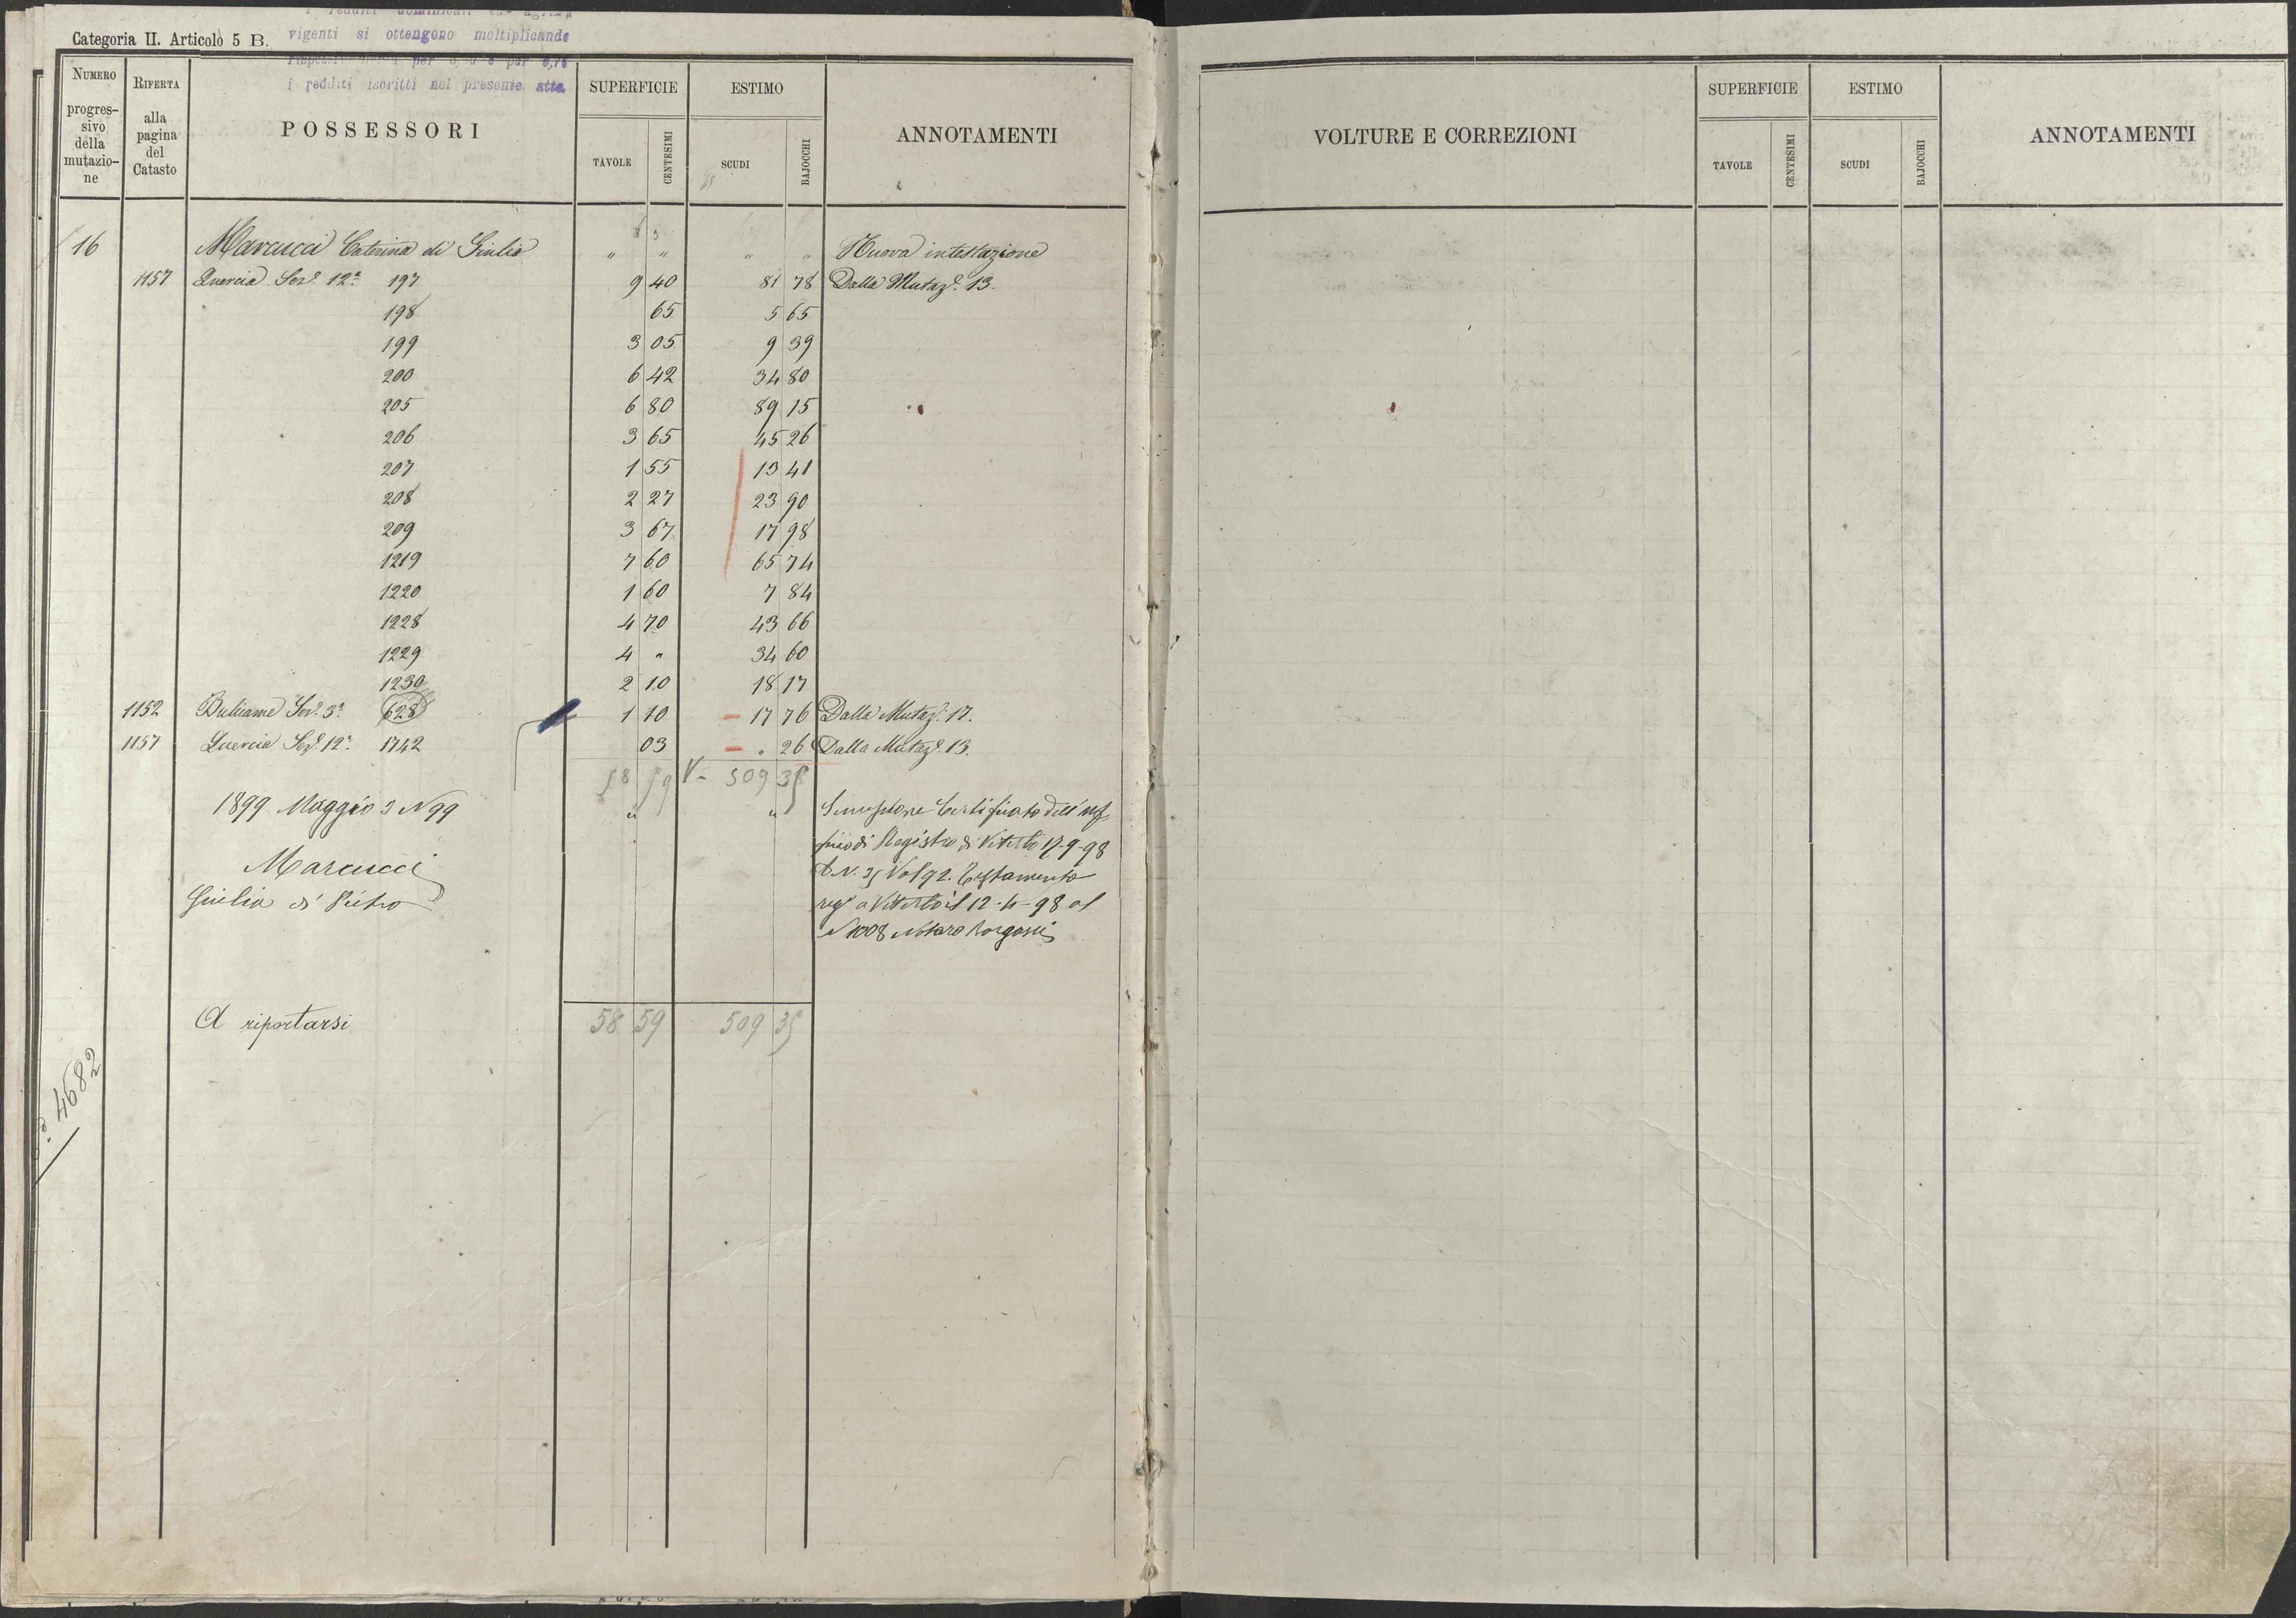 Categoria II. Articolo 5 B.
vigenti si ottengono moltiplicando
per
i redditi iscritti nel presente atto
NUMERO progres-sivo della mutazio-ne
RIFERTA alla pagina del Catasto
POSSESSORI
SUPERFICIE
TAVOLE
CENTESIMI
ESTIMO
SCUDI
BAJOCCHI
ANNOTAMENTI
16 Marcucci Caterina di Giulio " " " " Nuova intestazione
1157 Quercia Sez.e 12a 197 9 40 81 78 Dalla Mutaz.e 13.
198 65 5 65
199 3 05 9 39
200 6 42 34 80
205 6 80 89 15
206 3 65 45 26
207 1 55 13 41
208 2 27 23 90
209 3 67 17 98
1219 7 60 65 74
1220 1 60 7 84
1228 4 70 43 66
1229 4 " 34 60
1230 2 10 18 17
1152 Bulicame Sez.e 3a 628 1 10 - 17 76 Dalla Mutaz.e 17.
1157 Quercia Sez.e 12a 1742 03 - " 26 Dalla Mutaz.e 13.
58 59 V- 509 35
1899 Maggio 3 N 99 " " Successione Certificato dell'Uf
ficio di Registro di Viterbo 17-9-98
Marcucci
N. 35 Vol 92. Testamento
Giulia di Pietro
reg° a Viterbo il 12-4-98 al
N 1008 Notaro Borgassi
A riportarsi 58 59 509 35
4682
VOLTURE E CORREZIONI
SUPERFICIE
TAVOLE
CENTESIMI
ESTIMO
SCUDI
BAJOCCHI
ANNOTAMENTI